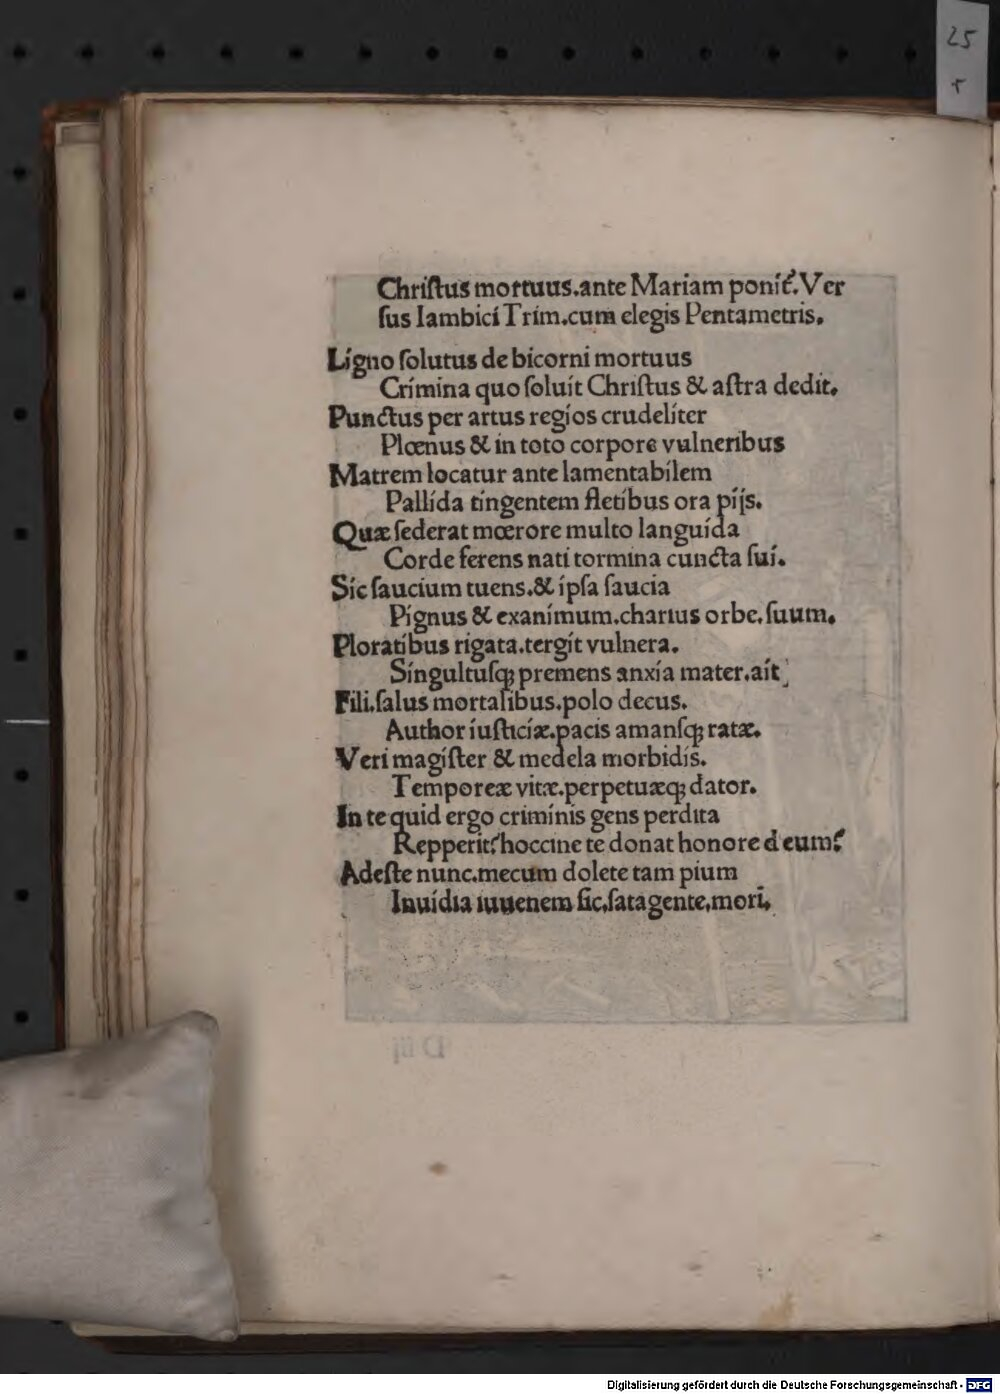 25
r
Chriſtus mortuus.ante Mariam ponit̃.Ver
ſus Iambici Trim.cum elegis Pentametris.
Ligno ſolutus de bicorni mortuus
Crimina quo ſoluit Chriſtus & aſtra dedit.
Punctus per artus regios crudeliter
Plœnus & in toto corpore vulneribus
Matrem locatur ante lamentabilem
Pallida tingentem fletibus ora pijs.
Quæ ſederat mœrore multo languida
Corde ferens nati tormina cuncta ſui.
Sic ſaucium tuens.& ipſa ſaucia
Pignus & exanimum.charius orbe.ſuum.
Ploratibus rigata.tergit vulnera.
Singultuſq; premens anxia mater.ait
Fili.ſalus mortalibus.polo decus.
Author iuſticiæ.pacis amanſq; ratæ.
Veri magiſter & medela morbidis.
Temporeæ vitæ.perpetuæq; dator.
In te quid ergo criminis gens perdita
Repperit?hoccine te donat honore deum?
Adeſte nunc.mecum dolete tam pium
Inuidia iuuenem ſic.ſatagente.mori.
D iij
Digitalisierung gefördert durch die Deutsche Forschungsgemeinschaft - DFG